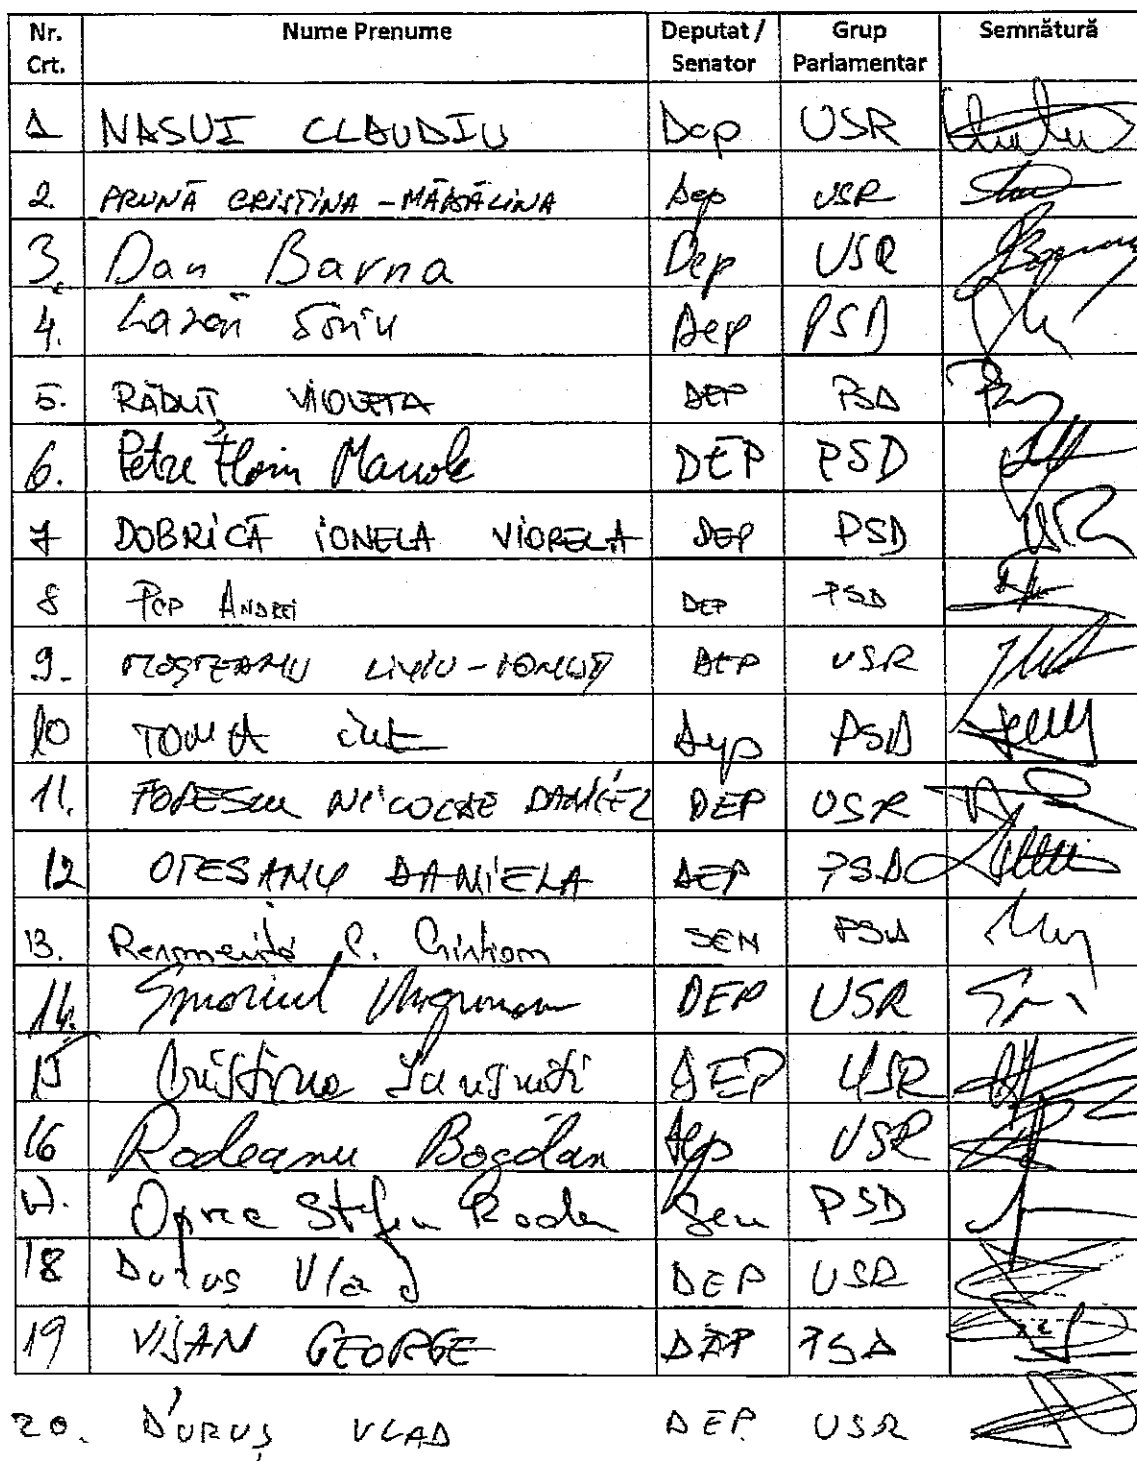 Nr. Crt. Nume Prenume Deputat / Senator Grup Parlamentar Semnătură
1 NASUI CLAUDIU Dep USR
2. PRUNĂ CRISTINA-MĂDĂLINA Dep USR
3. Dan Barna Dep USR
4. Lazăr Sorin Dep PSD
5. RĂDUȚ VIOLETA DEP PSD
6. Petre Florin Manole DEP PSD
7 DOBRICĂ IONELA VIORELA DEP PSD
8 POP ANDREI DEP PSD
9. MOȘTEANU LIVIU-IONUȚ DEP USR
10 TOMA Dep PSD
11. POPESCU NICOLAE DANIEL DEP USR
12 OTESANU DANIELA DEP PSD
13. C. SEN PSD
14. DEP USR
15 Cristina DEP USR
16 Rodeanu Bogdan Dep USR
17. Oprea Stefan Radu Sen PSD
18 Duruș Vlad DEP USR
19 VIȘAN GEORGE DEP PSD
20. DURUȘ VLAD DEP. USR